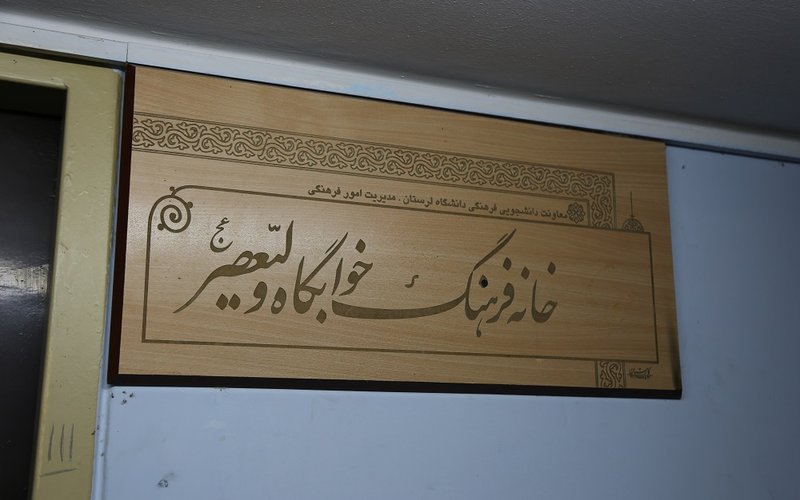 معاونت دانشجویی فرهنگی دانشگاه لرستان . مدیریت امور فرهنگی
خانه فرهنگ خوابگاه ولیعصر عج
III